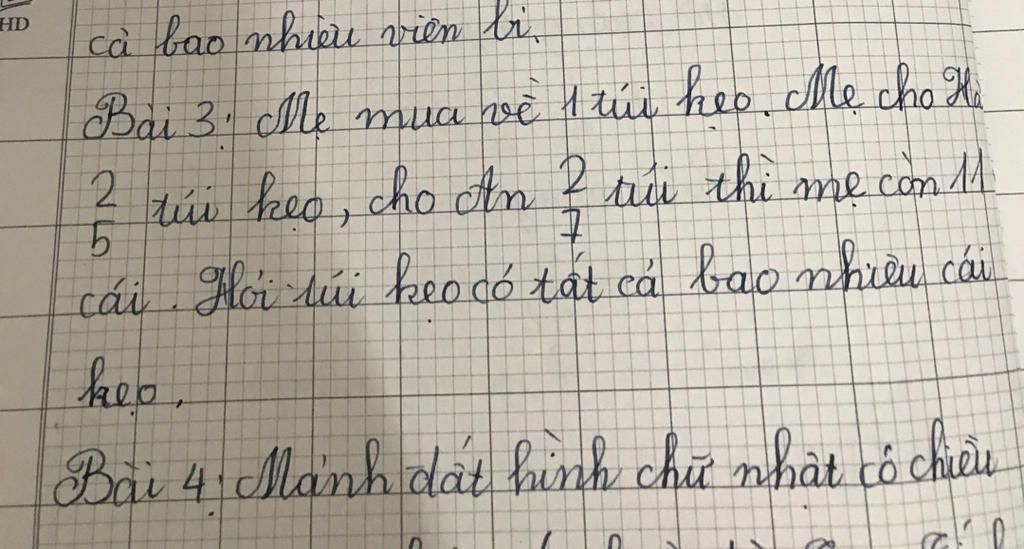 HD
cả bao nhiêu viên bi.
Bài 3: Mẹ mua về 1 túi kẹo. Mẹ cho Hà
2/5 túi kẹo, cho An 2/7 túi thì mẹ còn 11
cái. Hỏi túi kẹo có tất cả bao nhiêu cái
kẹo.
Bài 4: Mảnh đất hình chữ nhật có chiều